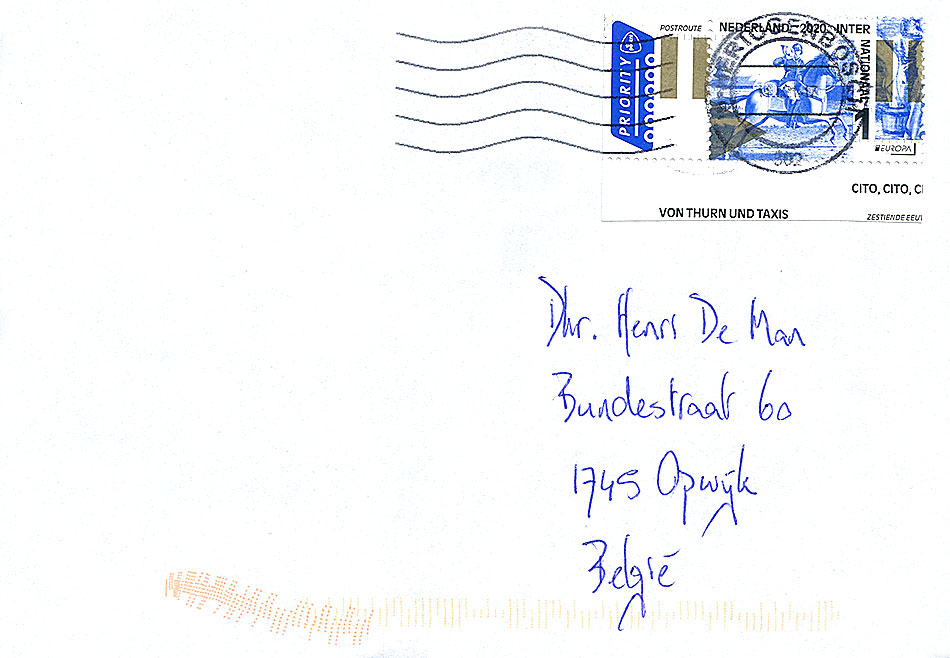 PRIORITY
POSTROUTE
NEDERLAND 2020 INTER
NATIONAAL
1
EUROPA
CITO, CITO, CI
VON THURN UND TAXIS
ZESTIENDE EEUW
Dhr. Henri De Man
Bundestraat 60
1745 Opwijk
België